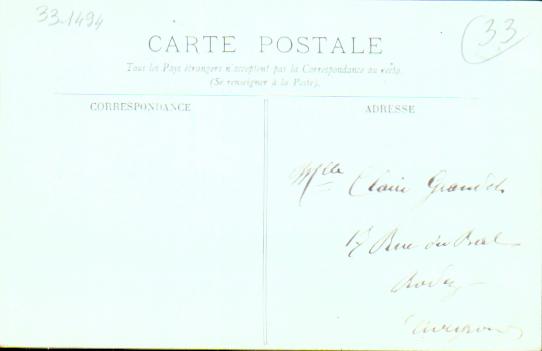 33-1494
33
CARTE POSTALE
Tous les Pays étrangers n'acceptent pas la Correspondance au recto.
(Se renseigner à la Poste).
CORRESPONDANCE
ADRESSE
Mlle Claire
17 Rue du Bal
Rodez
Aveyron